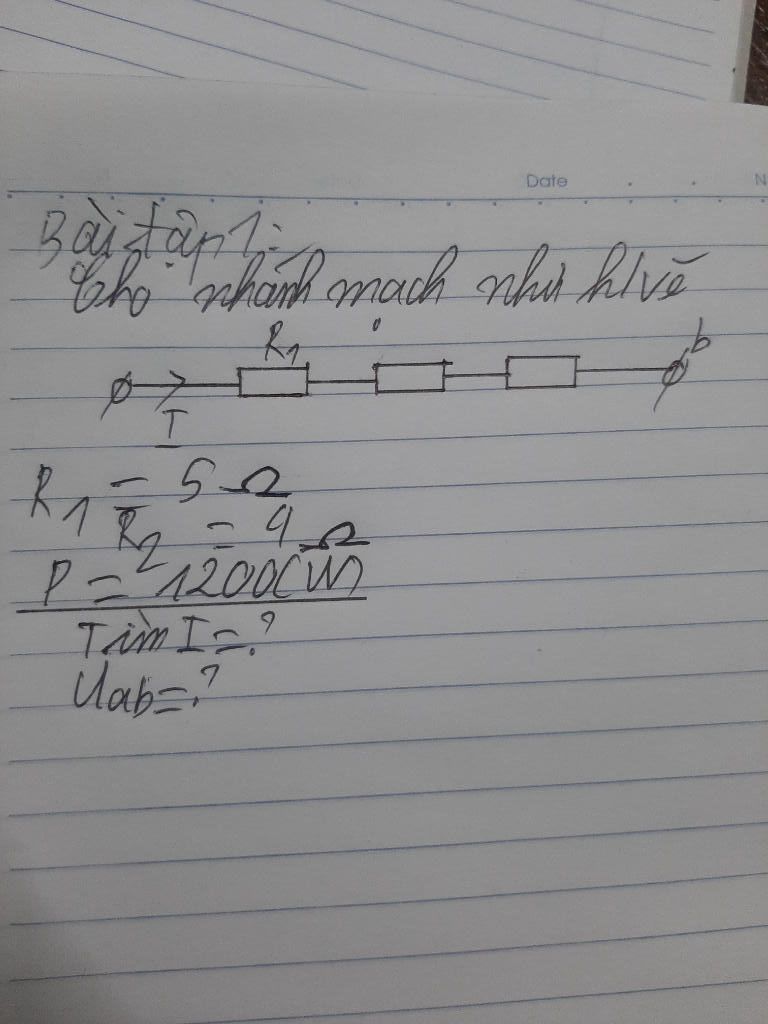 Date
Bài tập 1:
Cho nhánh mạch như h/vẽ
R1
b
I
R1 = 5 Ω
R2 = 4 Ω
P = 1200(W)
Tìm I = ?
Uab = ?